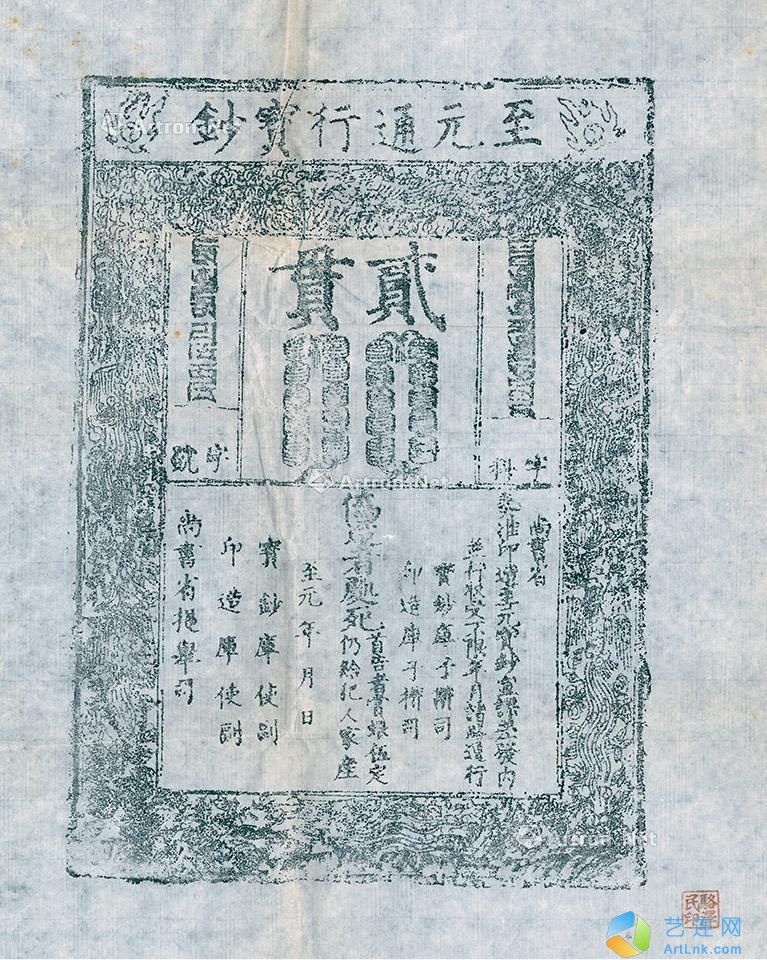 至元通行寶鈔
貳貫
字料
字號
尚書省
奏准印造至元寶鈔宣課差發内
並行收受不限年月諸路通行
寶鈔庫子攢司
印造庫子攢司
偽造者處死
首告者賞銀伍定
仍給犯人家產
至元 年 月 日
寶鈔庫使副
印造庫使副
尚書省提舉司
駱澤民印
Artron.Net
Artron.Net
Artron.Net
艺连网
ArtLnk.com